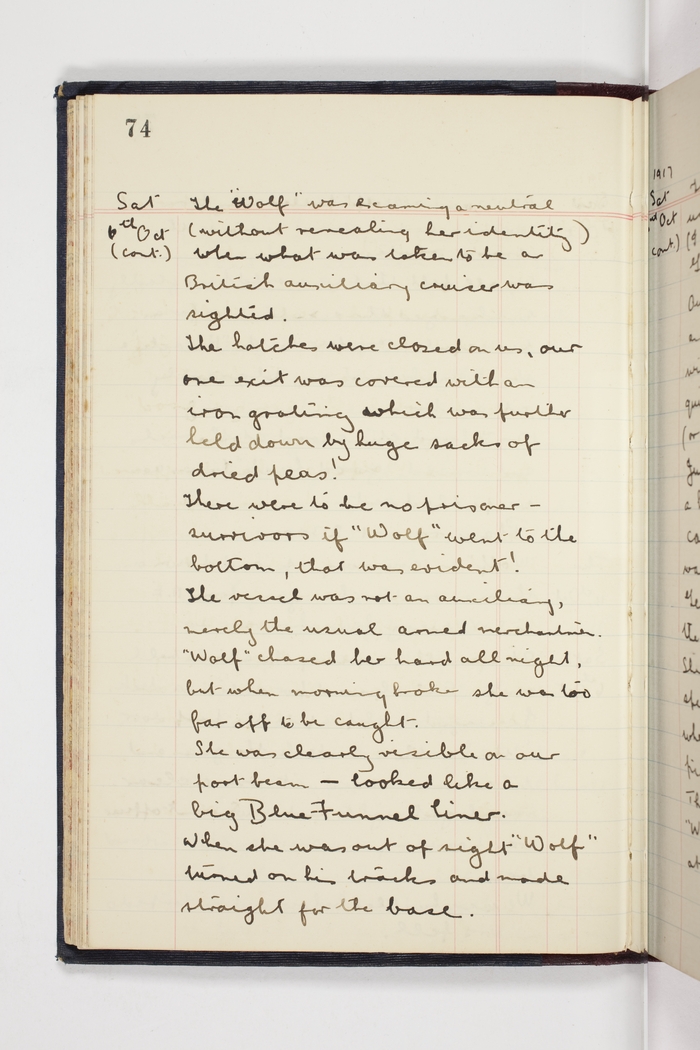 74
Sat The "Wolf" was examining a neutral
6th Oct (without revealing her identity)
(cont.) when what was taken to be a
British auxiliary cruiser was
sighted.
The hatches were closed on us, our
one exit was covered with an
iron grating which was further
held down by huge sacks of
dried peas!
There were to be no prisoner -
survivors if "Wolf" went to the
bottom, that was evident!
The vessel was not an auxiliary,
merely the usual armed merchantman.
"Wolf" chased her hard all night,
but when morning broke she was too
far off to be caught.
She was clearly visible on our
port beam — looked like a
big Blue-Funnel liner.
When she was out of sight "Wolf"
turned on his tracks and made
straight for the base.
1917
Sat
Oct
(cont.)